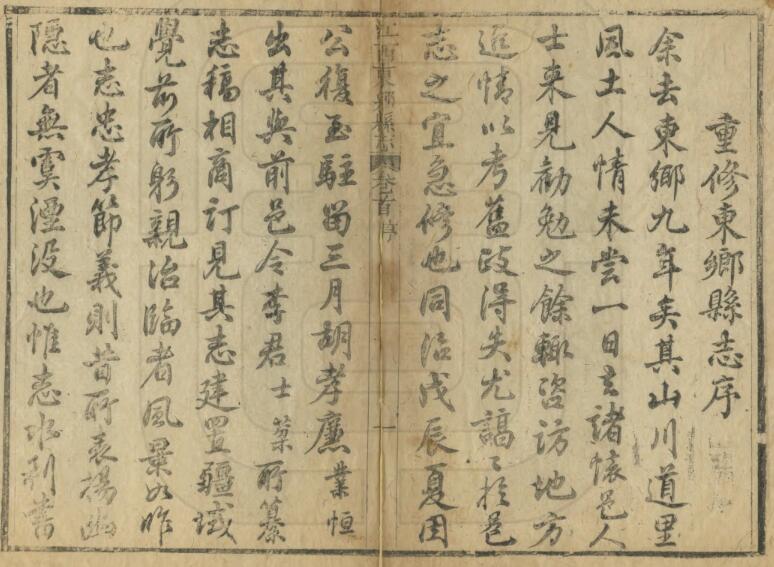 重修東鄉縣志序
余去東鄉九年矣其山川道里
風土人情未嘗一日去諸懷邑人
士來見勸勉之餘輒咨訪地方
近情以考舊政得失尤諄〻於邑
志之宜急修也同治戊辰夏因
江西東鄉縣志 卷首 序 一
公復至駐留三月胡孝廉業恒
出其與前邑令李君士棻所纂
志稿相商訂見其志建置疆域
覺前所躬親治臨者風景如昨
也志忠孝節義則昔所表揚幽
隱者無虞湮没也惟志水利書